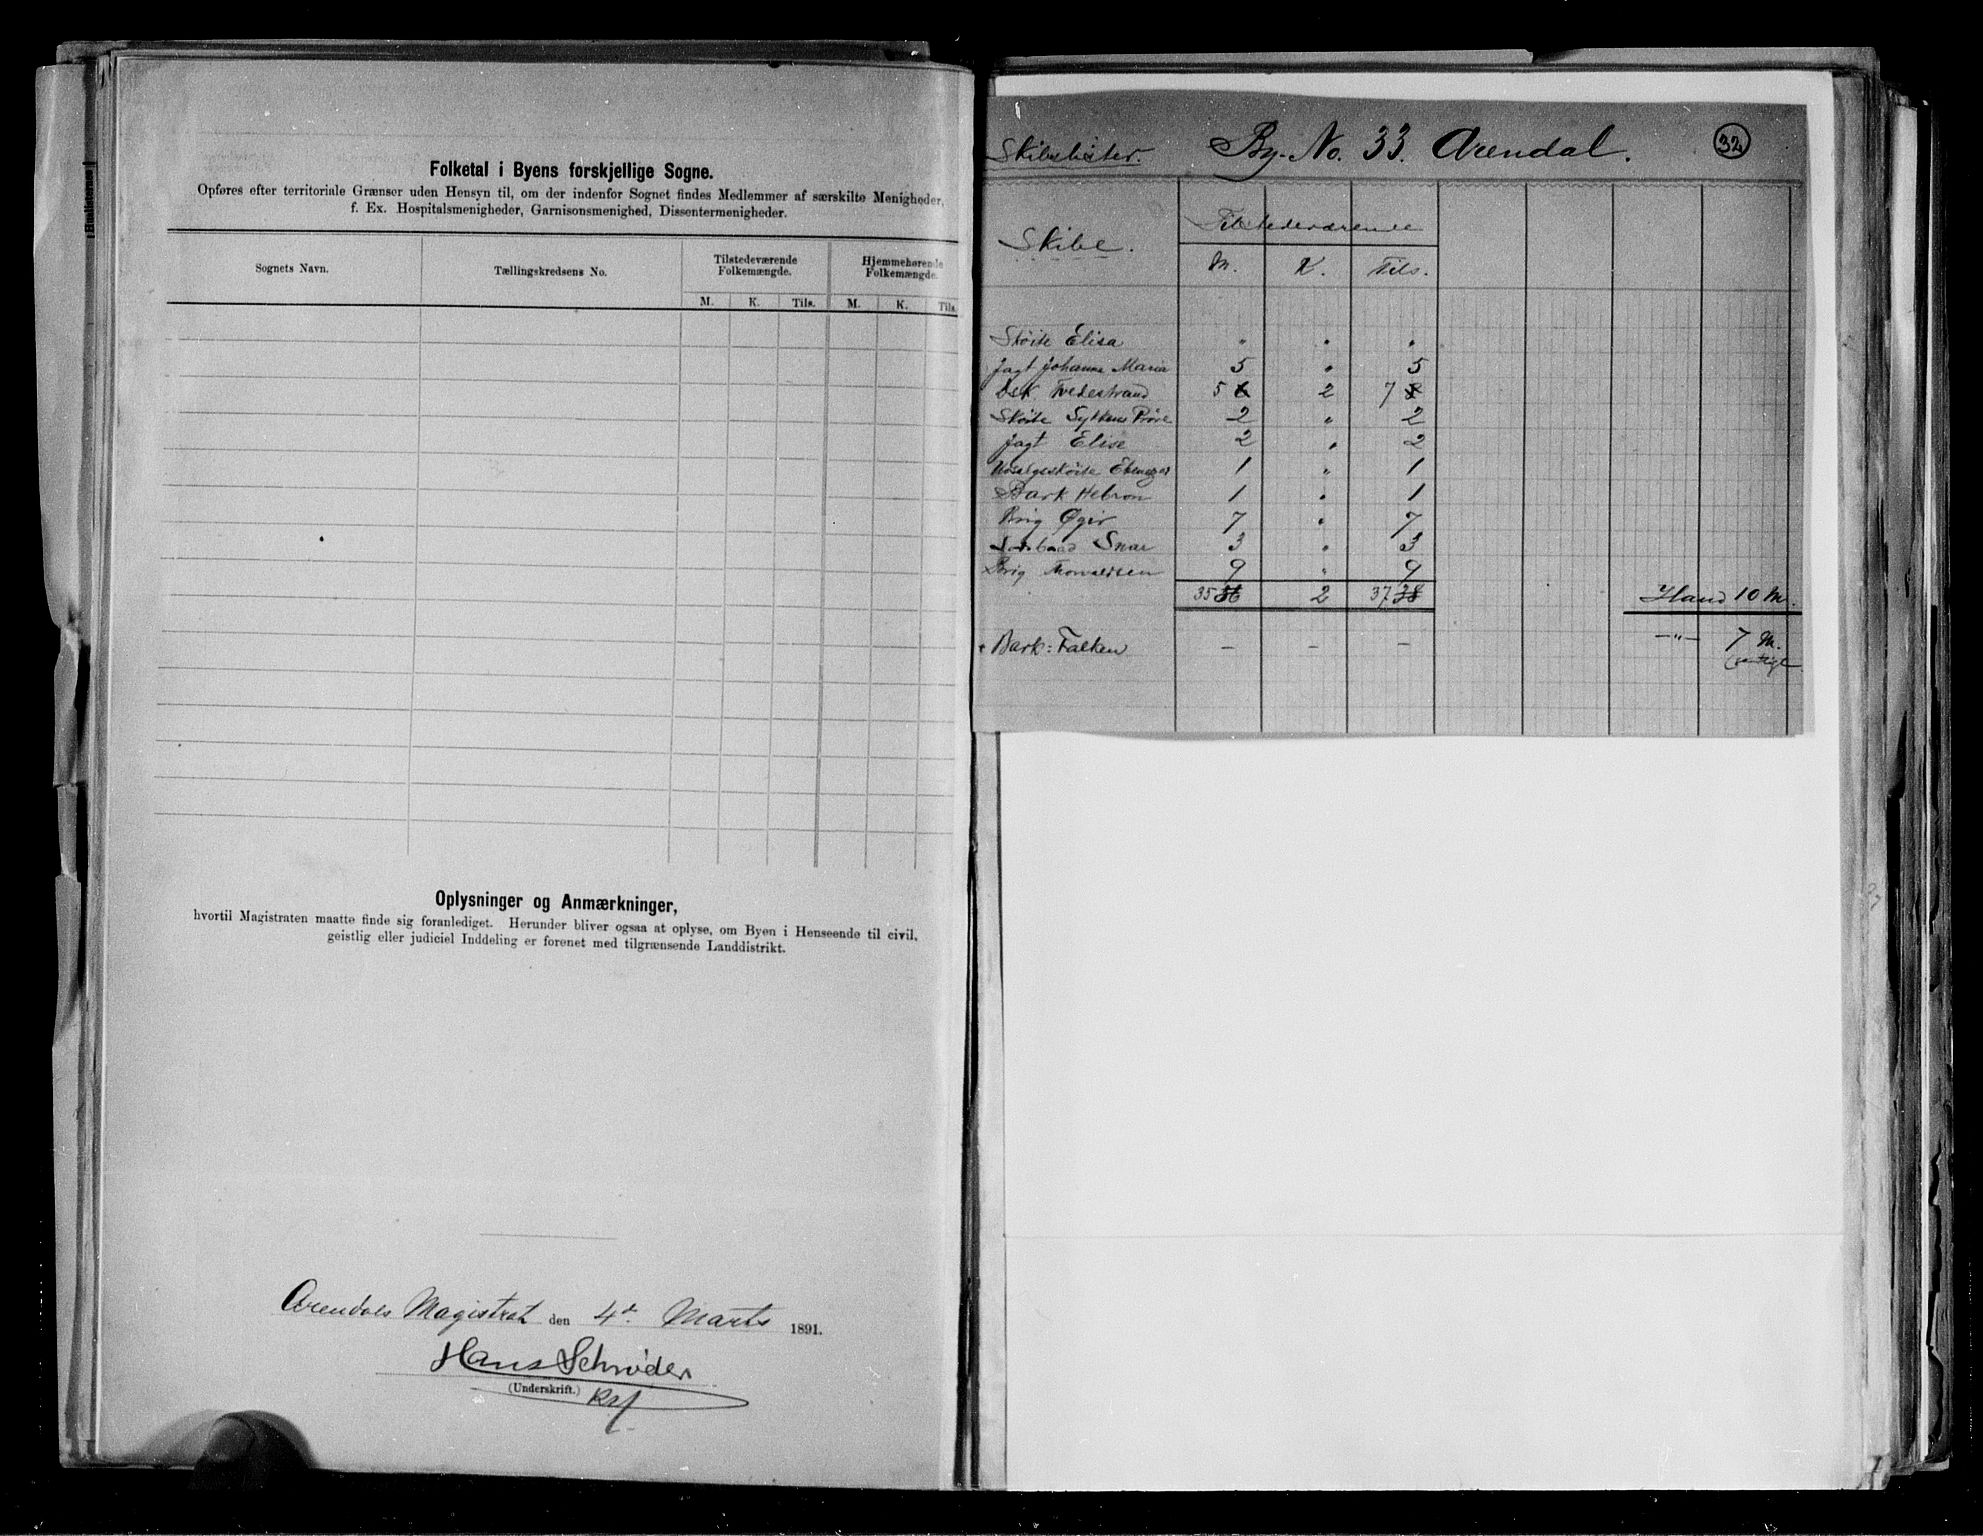 Folketal i Byens forskjellige Sogne.
Opføres efter territoriale Grænser uden Hensyn til, om der indenfor Sognet findes Medlemmer af særskilte Menigheder,
f. Ex. Hospitalsmenigheder, Garnisonsmenighed, Dissentermenigheder.
Sognets Navn. Tællingskredsens No. Tilstedeværende Folkemængde. Hjemmehørende Folkemængde.
M. K. Tils. M. K. Tils.
Oplysninger og Anmærkninger,
hvortil Magistraten maatte finde sig foranlediget. Herunder bliver ogsaa at oplyse, om Byen i Henseende til civil,
geistlig eller judiciel Inddeling er forenet med tilgrænsende Landdistrikt.
Arendals Magistrat den 4de Marts 1891.
Hans Schrøder
(Underskrift.)
Skibslister. By-No. 33. Arendal. 32
Skibe. Tilstedeværende
M. K. Tils.
Skøite Elisa " " "
Jagt Johanna Maria 5 " 5
Dsk. Tvedestrand 5 6 2 7 8
Skøite 2 " 2
Jagt Elise 2 " 2
Ebenezer 1 " 1
Bark Hebron 1 " 1
Brig Øgir 7 " 7
Snar 3 " 3
Brig Thorvaldsen 9 " 9
35 36 2 37 38 10 M.
Bark: Falken – – – –"– 7 M.